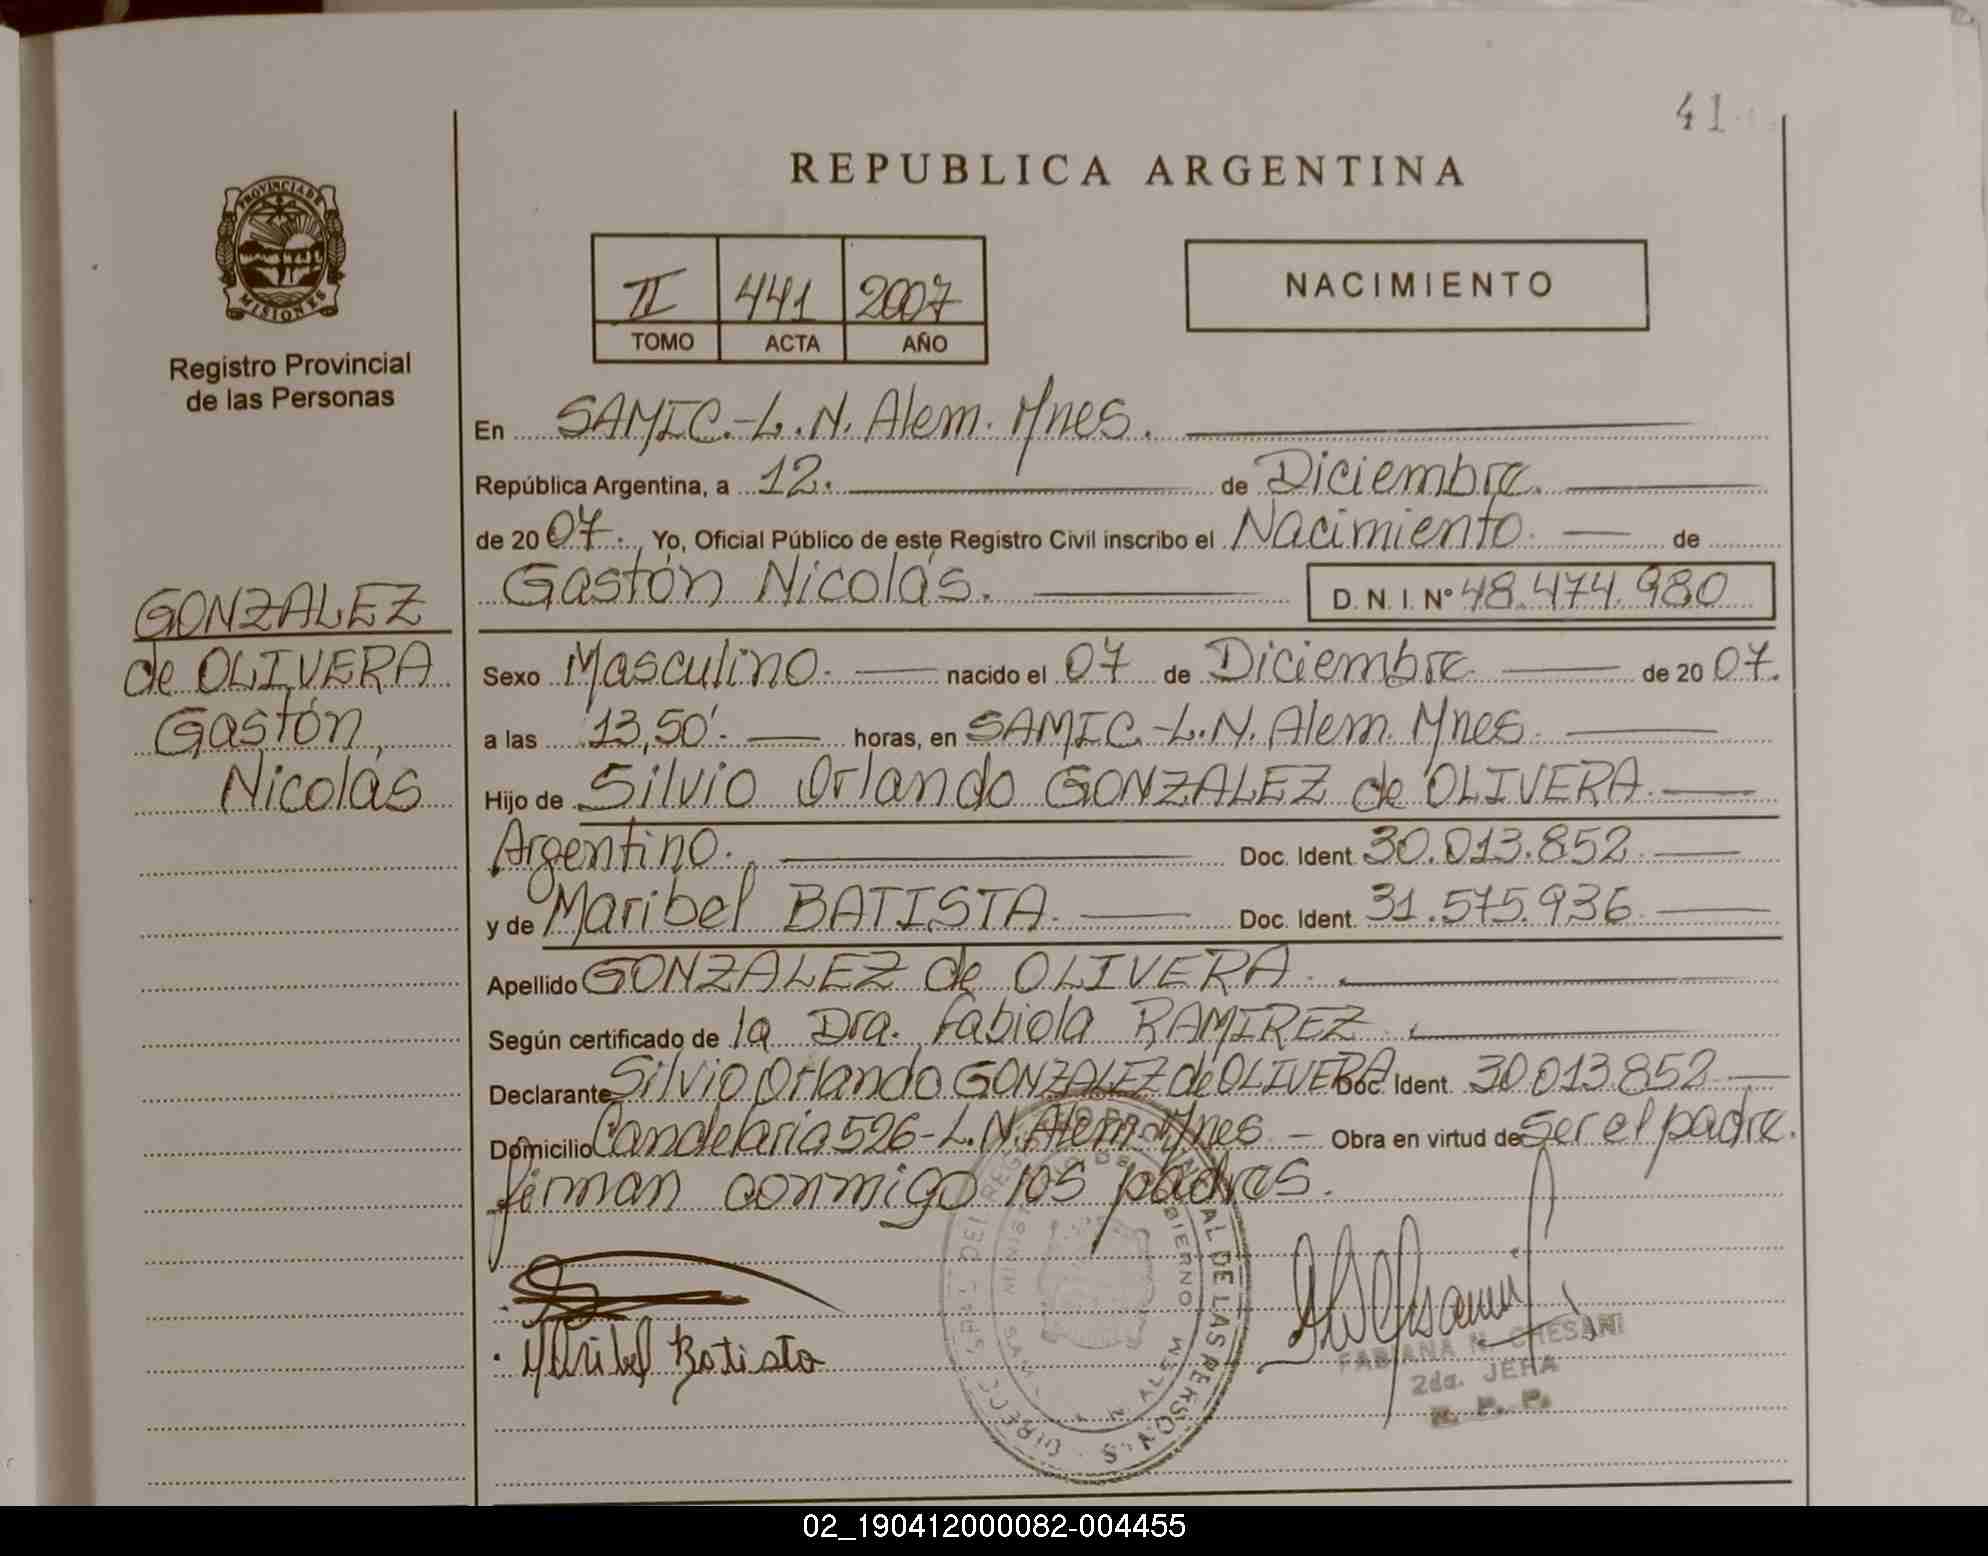 41
PROVINCIA DE
MISIONES
Registro Provincial
de las Personas
GONZALEZ
de OLIVERA
Gastón,
Nicolás
REPUBLICA ARGENTINA
II 441 2007
TOMO ACTA AÑO
NACIMIENTO
En SAMIC.-L.N. Alem. Mnes.
República Argentina, a 12. de Diciembre.
de 2007. Yo, Oficial Público de este Registro Civil inscribo el Nacimiento. de
Gastón Nicolás. D. N. I. N° 48.474.980
Sexo Masculino. nacido el 07 de Diciembre de 2007.
a las 13,50'. horas, en SAMIC.-L.N. Alem. Mnes.
Hijo de Silvio Orlando GONZALEZ de OLIVERA.
Argentino. Doc. Ident. 30.013.852.
y de Maribel BATISTA. Doc. Ident. 31.575.936
Apellido GONZALEZ de OLIVERA.
Según certificado de la Dra. Fabiola RAMIREZ.
Declarante Silvio Orlando GONZALEZ de OLIVERA Doc. Ident. 30.013.852
Domicilio Candelaria 526-L.N. Alem. Mnes Obra en virtud de Ser el padre.
firman conmigo los padres.
Maribel Batista
FABIANA N. CHESANI
2da. JEFA
R. P. P.
02_190412000082-004455